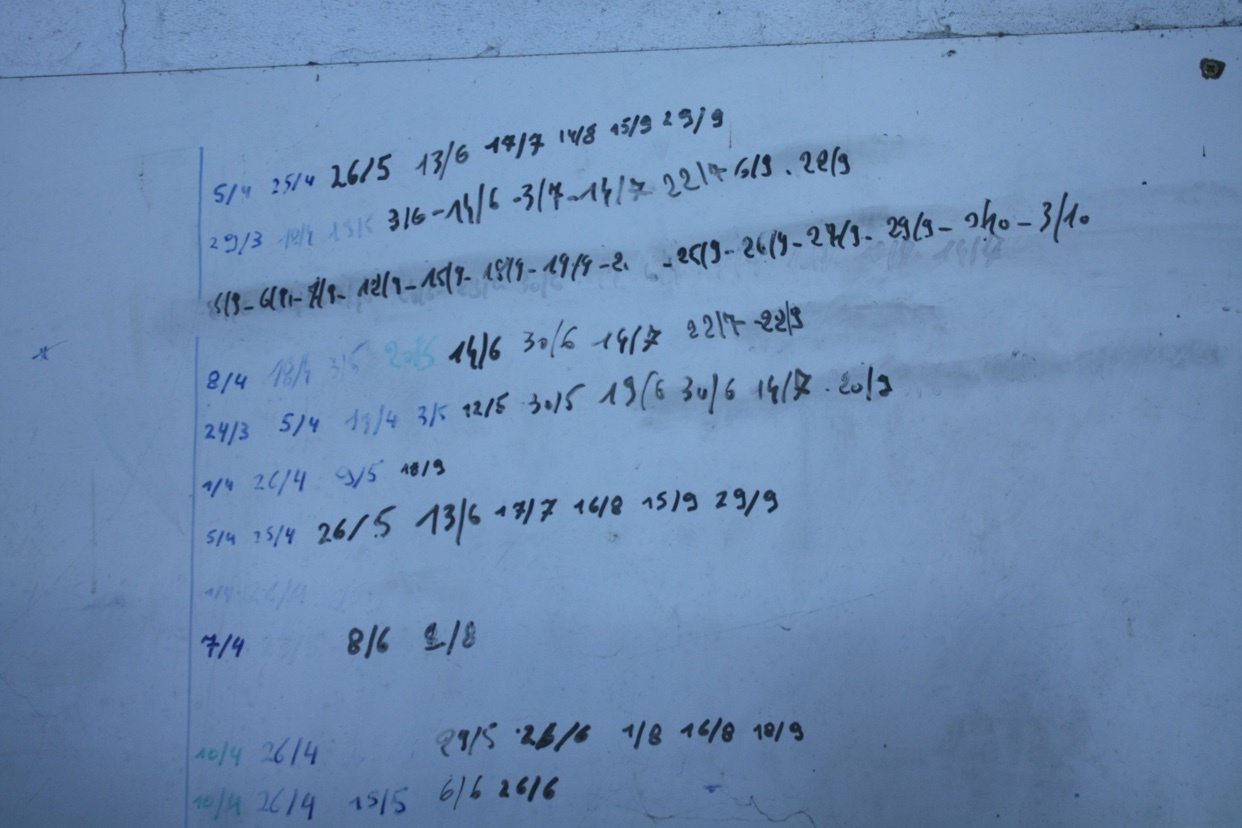 5/4 25/4 26/5 13/6 17/7 14/8 15/9 29/9
29/3 18/4 3/6 - 14/6 - 3/7 - 14/7 22/7 6/9 . 22/9
5/9 - 6/9 - 7/9 - 12/9 - 15/9 - 18/9 - 19/9 - 2 - 25/9 - 26/9 - 27/9 - 29/9 - 2/10 - 3/10
8/4 18/4 3/5 20/5 14/6 30/6 14/7 22/7 - 22/9
24/3 5/4 19/4 3/5 12/5 30/5 19/6 30/6 14/7 . 20/9
1/4 26/4 9/5 18/9
5/4 25/4 26/5 13/6 17/7 16/8 15/9 29/9
26/4
7/4 8/6 2/8
10/4 26/4 29/5 26/6 1/8 16/8 18/9
10/4 26/4 15/5 6/6 26/6